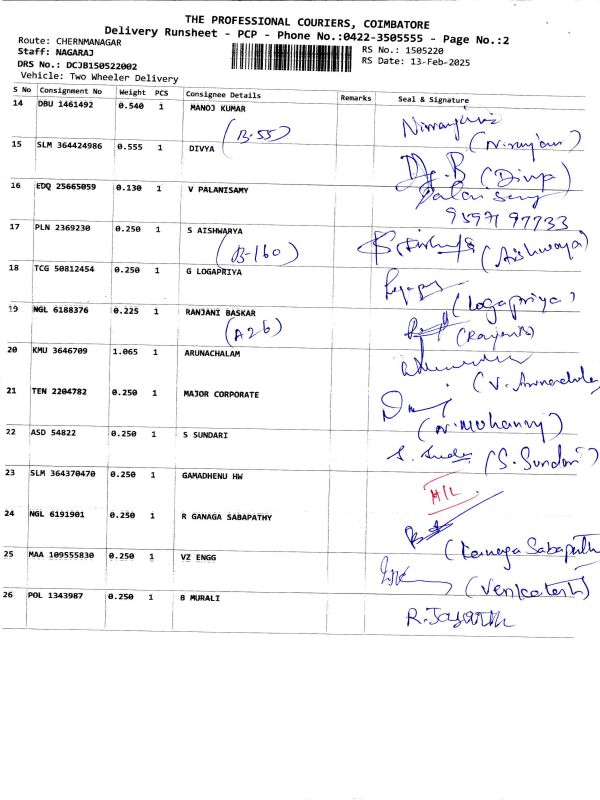 THE PROFESSIONAL COURIERS, COIMBATORE
Delivery Runsheet - PCP - Phone No.:0422-3505555 - Page No.:2
Route: CHERNMANAGAR
Staff: NAGARAJ
RS No.: 1505220
DRS No.: DCJB150522002
RS Date: 13-Feb-2025
Vehicle: Two Wheeler Delivery
S No Consignment No Weight PCS Consignee Details Remarks Seal & Signature
14 DBU 1461492 0.540 1 MANOJ KUMAR
(B-55)
15 SLM 364424986 0.555 1 DIVYA (Divya)
16 EDQ 25665059 0.130 1 V PALANISAMY
95971 97733
17 PLN 2369230 0.250 1 S AISHWARYA (Aishwarya)
(B-160)
18 TCG 50812454 0.250 1 G LOGAPRIYA
(Logapriya)
19 NGL 6188376 0.225 1 RANJANI BASKAR
(A26)
20 KMU 3646709 1.065 1 ARUNACHALAM
21 TEN 2204782 0.250 1 MAJOR CORPORATE
22 ASD 54822 0.250 1 S SUNDARI (S. Sundari)
23 SLM 364370470 0.250 1 GAMADHENU HW
H/L
24 NGL 6191901 0.250 1 R GANAGA SABAPATHY
25 MAA 109555830 0.250 1 VZ ENGG
(Venkatesh)
26 POL 1343987 0.250 1 B MURALI